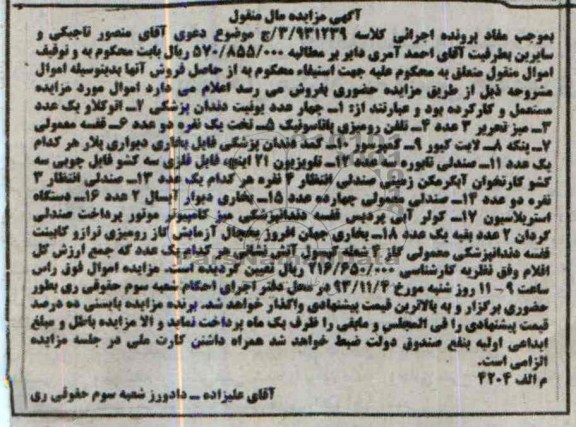 آگهی مزایده مال منقول
بموجب مفاد پرونده اجرائی کلاسه ۳/۹۳۱۲۳۹/ج موضوع دعوی آقای منصور تاجیکی و
سایرین بطرفیت آقای احمد آمری دایر بر مطالبه ۵۷۰/۸۵۵/۰۰۰ ریال بابت محکوم به و توقیف
اموال منقول متعلق به محکوم علیه جهت استیفاء محکوم به از حاصل فروش آنها بدینوسیله اموال
مشروحه ذیل از طریق مزایده حضوری بفروش می رسد اعلام می دارد اموال مورد مزایده
مستعمل و کارکرده بود و عبارتند از: ۱- چهار عدد یونیت دندان پزشکی ۲- اتوکلاو یک عدد
۳- میز تحریر ۳ عدد ۴- تلفن رومیزی پاناسونیک ۵- تخت یک نفره دو عدد ۶- قفسه معمولی
۷- پنکه ۸- لایت کیور ۹- کمپرسور ۱۰- کمد دندان پزشکی فایل بخاری دیواری پلار هر کدام
یک عدد ۱۱- صندلی تابوره عدد ۱۲- تلویزیون ۲۱ اینچ، فایل فلزی سه کشو فایل چوبی سه
کشو کارتخوان آبگرمکن زمینی صندلی انتظار ۴ نفره هر کدام یک عدد ۱۳- صندلی انتظار ۳
نفره دو عدد ۱۴- صندلی معمولی چهارده عدد ۱۵- بخاری دیوار آبسال ۲ عدد ۱۶- دستگاه
استریلاسیون ۱۷- کولر آبی پردیس قفسه دندانپزشکی میز کامپیوتر موتور پرداخت صندلی
گردان ۲ عدد بقیه یک عدد ۱۸- بخاری جهان افروز یخچال آزمایش گاز رومیزی ترازو کابینت
قفسه دندانپزشکی معمولی گاز ۴ شعله آتش نشانی هر کدام یک عدد که جمع ارزش کل
اقلام وفق نظریه کارشناسی ۲۱۶/۶۵۰/۰۰۰ ریال تعیین گردیده است. مزایده اموال فوق راس
ساعت ۹-۱۱ روز شنبه مورخ ۹۳/۱۱/۴ در محل دفتر اجرای احکام شعبه سوم حقوقی ری بطور
حضوری برگزار و به بالاترین قیمت پیشنهادی واگذار خواهد شد. برنده مزایده بایستی ده درصد
قیمت پیشنهادی را فی المجلس و مابقی را ظرف یک ماه پرداخت نماید و الا مزایده باطل و مبلغ
ابداعی اولیه بنفع صندوق دولت ضبط خواهد شد همراه داشتن کارت ملی در جلسه مزایده
الزامی است.
م الف ۴۲۰۴
آقای علیزاده – دادورز شعبه سوم حقوقی ری